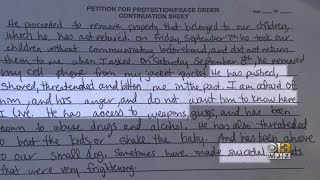 PETITION FOR PROTECTION/PEACE ORDER
CONTINUATION SHEET
He proceeded to remove property that belonged to our children,
which he has not returned. on Friday, September 7th he took our
children without communicating beforehand, and did not return
them to me when I asked. On Saturday September 8th, he removed
my cell phone from my jacket pocket. He has pushed,
shoved, threatended and bitten me in the past. I am afraid of
him and his anger, and do not want him to know where
I live. He has access to weapons, guns, and has been
known to abuse drugs and alcohol. He has also threatended
to beat the kids or shake the baby. And has been abusive
to our small dog. Sometimes have made suicidal threats
that were very frightening.
WJZ